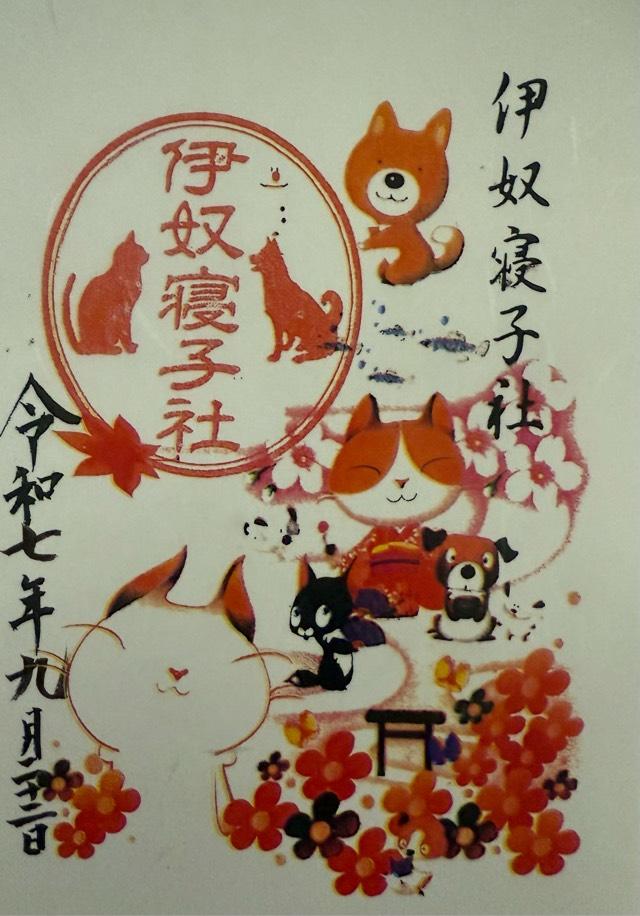 伊奴寝子社
伊奴寝子社
令和七年九月二十二日